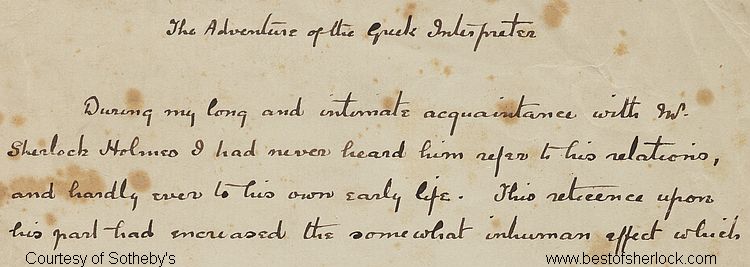 The Adventure of the Greek Interpreter
During my long and intimate acquaintance with Mr.
Sherlock Holmes I had never heard him refer to his relations,
and hardly ever to his own early life. This reticence upon
his part had encreased the somewhat inhuman effect which
Courtesy of Sotheby's www.bestofsherlock.com